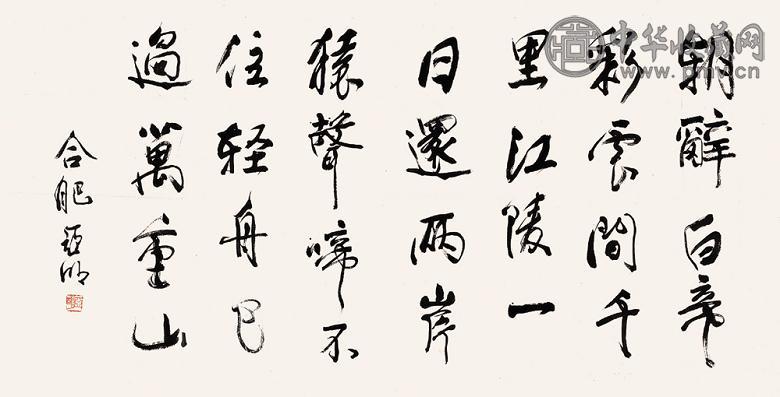 朝辭白帝
彩雲間千
里江陵一
日還兩岸
猿聲啼不
住轻舟已
過萬重山
合肥亚明
中华收藏网
www.pmv.cn